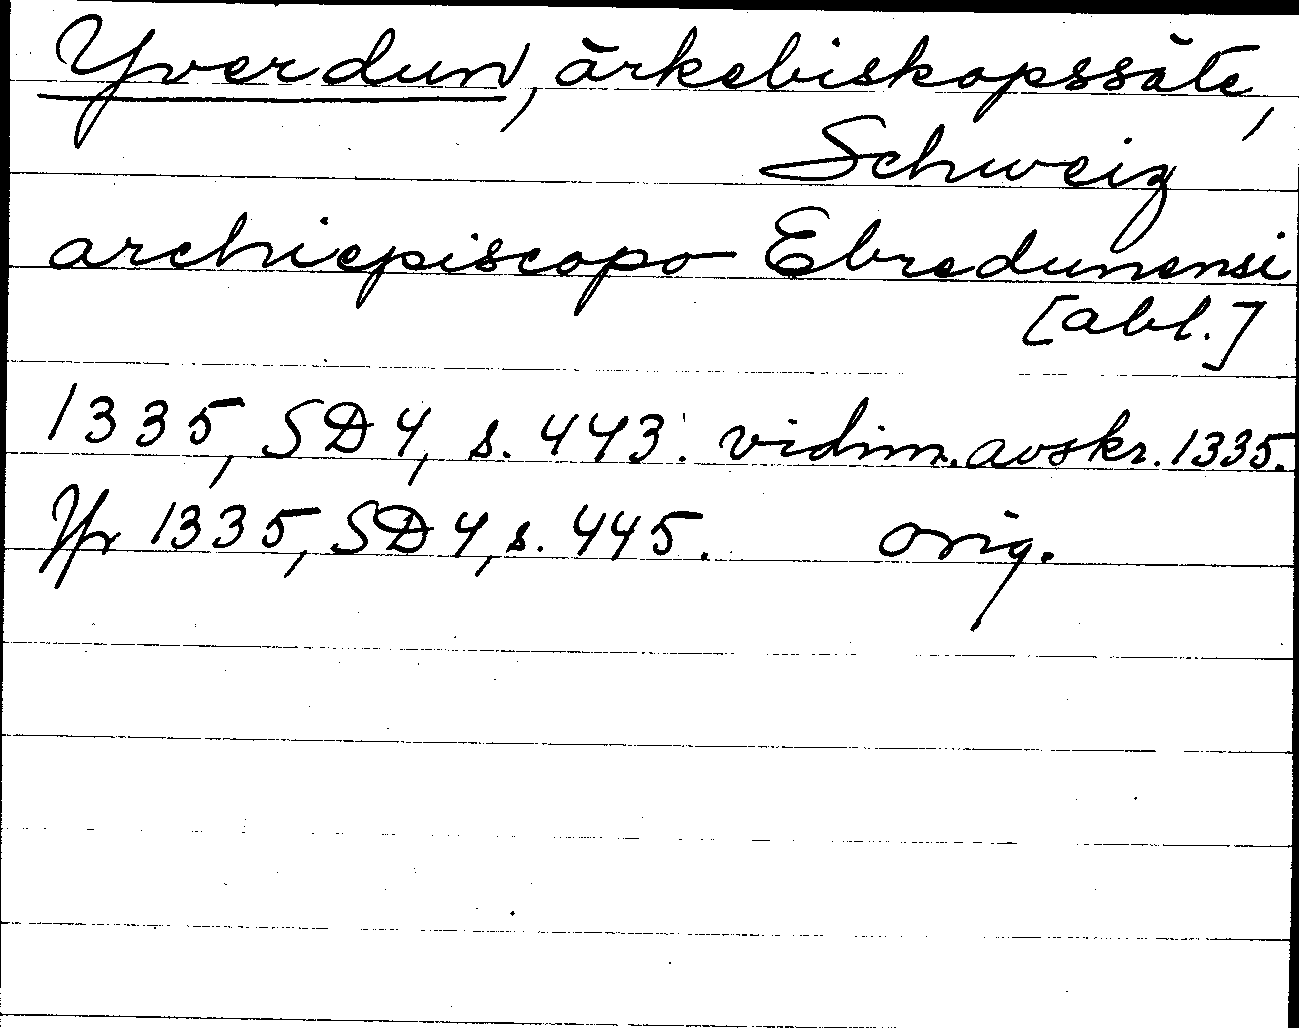 Yverdun, ärkebiskopssäte,
Schweiz
archiepiscopo Ebredunensi
[abl.]
1335, SD 4, s. 443. vidim. avskr. 1335.
Jfr 1335, SD 4, s. 445. orig.